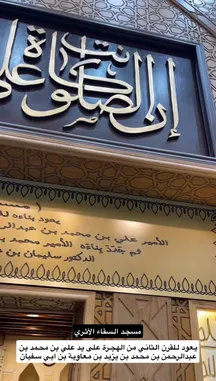 إن الصلوة كانت على
يعود بناءه
الأمير علي بن محمد بن عبدالر
ثم جدد بناءه الأمير محمد بن
الدكتور سليمان بن
مسجد السقاء الأثري
يعود للقرن الثاني من الهجرة على يد علي بن محمد بن
عبدالرحمن بن محمد بن يزيد بن معاوية بن ابي سفيان